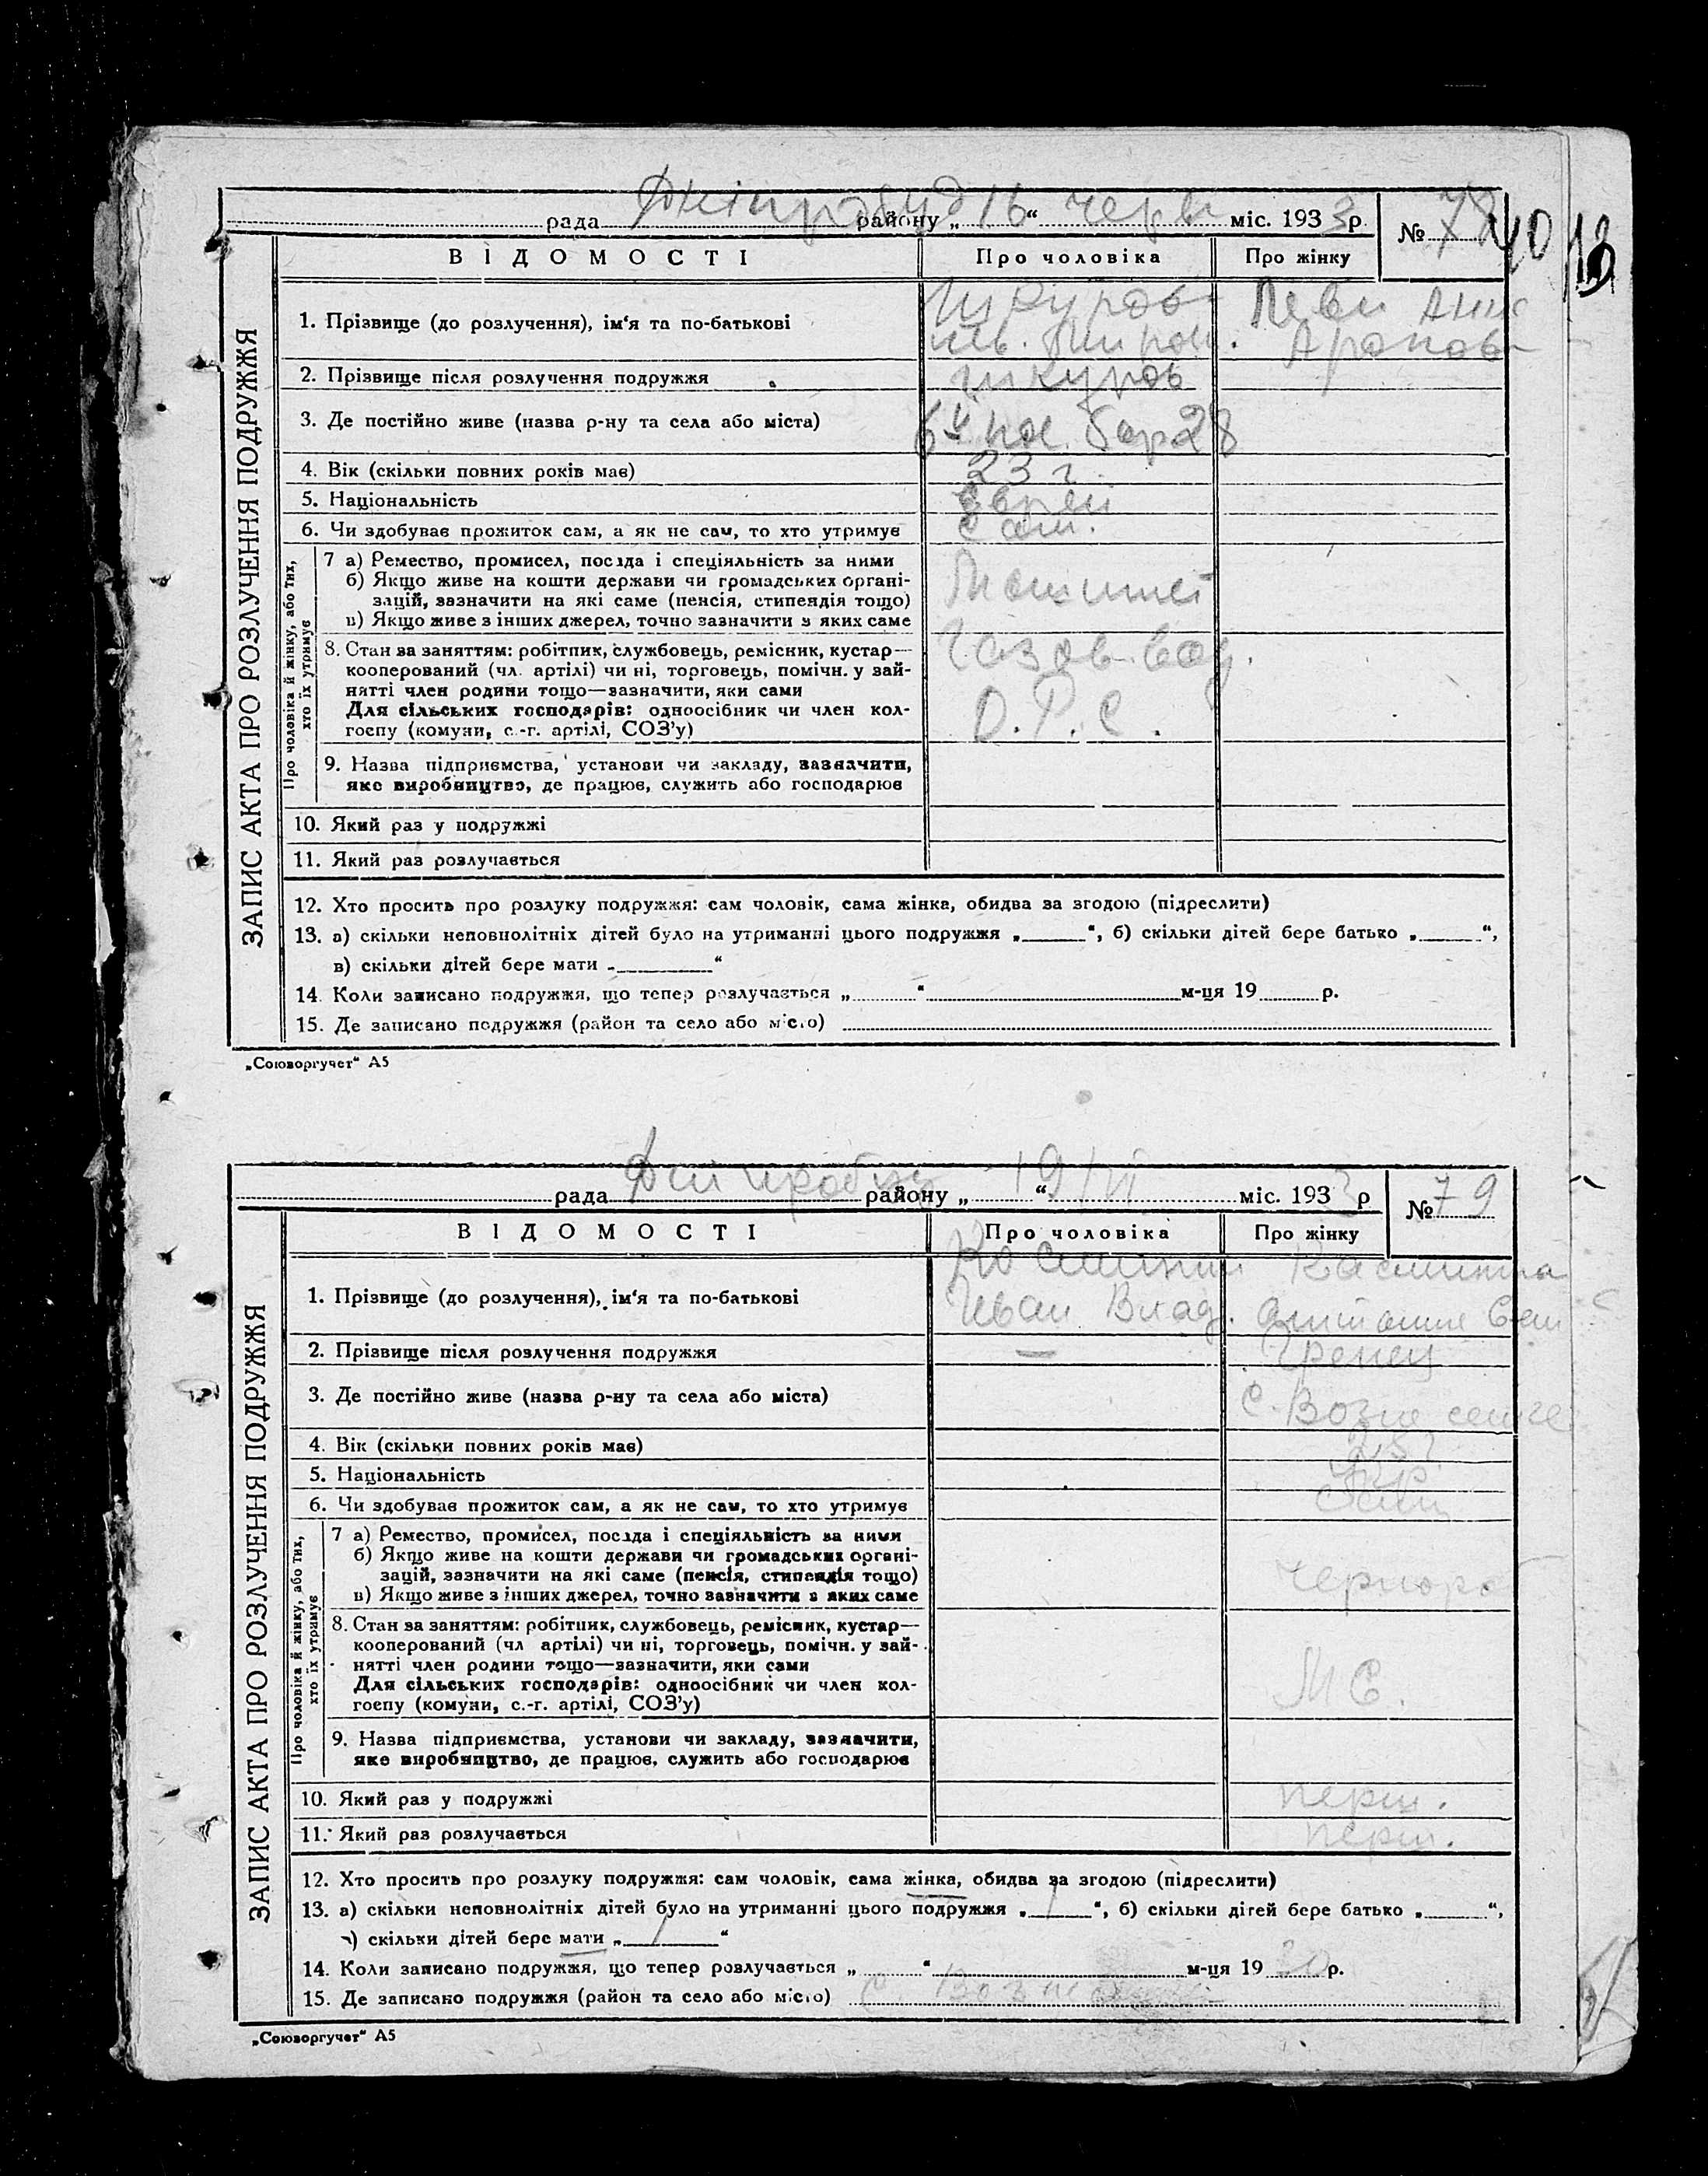 рада Дніпробуд району „ 16 “ черв міс. 193 3 р. № 78
40
ВІДОМОСТІ Про чоловіка Про жінку
ЗАПИС АКТА ПРО РОЗЛУЧЕННЯ ПОДРУЖЖЯ
1. Прізвище (до розлучення), ім‘я та по-батькові Шкуров Леви Анн
Аронов
2. Прізвище після розлучення подружжя Шкуров
3. Де постійно живе (назва р-ну та села або міста) 6й пос. бар 28
4. Вік (скільки повних років має) 23 г.
5. Національність Еврей
6. Чи здобуває прожиток сам, а як не сам, то хто утримує Сам.
Про чоловіка й жінку, або тих, хто їх утримує
7 а) Ремество, промисел, посада і спеціяльність за ними
б) Якщо живе на кошти держави чи громадських органі-
зацій, зазначити на які саме (пенсія, стипендія тощо) Машинист
в) Якщо живе з інших джерел, точно зазначити з яких саме
8. Стан за заняттям: робітник, службовець, ремісник, кустар—
кооперований (чл. артілі) чи ні, торговець, помічн. у зай-
нятті член родини тощо—зазначити, яки сами
Для сільських господарів: одноосібник чи член кол- О.Р.С.
госпу (комуни, с.-г. артілі, СОЗ’у)
9. Назва підприємства, установи чи закладу, зазначити,
яке виробництво, де працює, служить або господарює
10. Який раз у подружжі
11. Який раз розлучається
12. Хто просить про розлуку подружжя: сам чоловік, сама жінка, обидва за згодою (підреслити)
13. а) скільки неповнолітніх дітей було на утриманні цього подружжя „ “, б) скільки дітей бере батько „ “,
в) скільки дітей бере мати „ “
14. Коли записано подружжя, що тепер розлучається „ “ м-ця 19 р.
15. Де записано подружжя (район та село або місто)
„Союзоргучет“ А5
рада Дніпробуд району „ 19/VI “ міс. 193 3 р № 79
ВІДОМОСТІ Про чоловіка Про жінку
ЗАПИС АКТА ПРО РОЗЛУЧЕННЯ ПОДРУЖЖЯ
1. Прізвище (до розлучення), ім‘я та по-батькові
Иван Влад.
2. Прізвище після розлучення подружжя — Гренец
3. Де постійно живе (назва р-ну та села або міста) С.
4. Вік (скільки повних років має)
5. Національність Укр.
6. Чи здобуває прожиток сам, а як не сам, то хто утримує Сам
Про чоловіка й жінку, або тих, хто їх утримує
7 а) Ремество, промисел, посада і спеціяльність за ними
б) Якщо живе на кошти держави чи громадських органі-
зацій, зазначити на які саме (пенсія, стипендія тощо) Чернораб
в) Якщо живе з інших джерел, точно зазначити з яких саме
8. Стан за заняттям: робітник, службовець, ремісник, кустар—
кооперований (чл артілі) чи ні, торговець, помічн. у зай-
нятті член родини тощо—зазначити, яки сами
Для сільських господарів: одноосібник чи член кол- М С.
госпу (комуни, с.-г. артілі, СОЗ’у)
9. Назва підприємства, установи чи закладу, зазначити,
яке виробництво, де працює, служить або господарює
10. Який раз у подружжі перш.
11. Який раз розлучається перш.
12. Хто просить про розлуку подружжя: сам чоловік, сама жінка, обидва за згодою (підреслити)
13. а) скільки неповнолітніх дітей було на утриманні цього подружжя „ 1 “, б) скільки дітей бере батько „ “,
в) скільки дітей бере мати „ 1 “
14. Коли записано подружжя, що тепер розлучається „ “ м-ця 19 30 р.
15. Де записано подружжя (район та село або місто) С.
„Союзоргучет“ А5